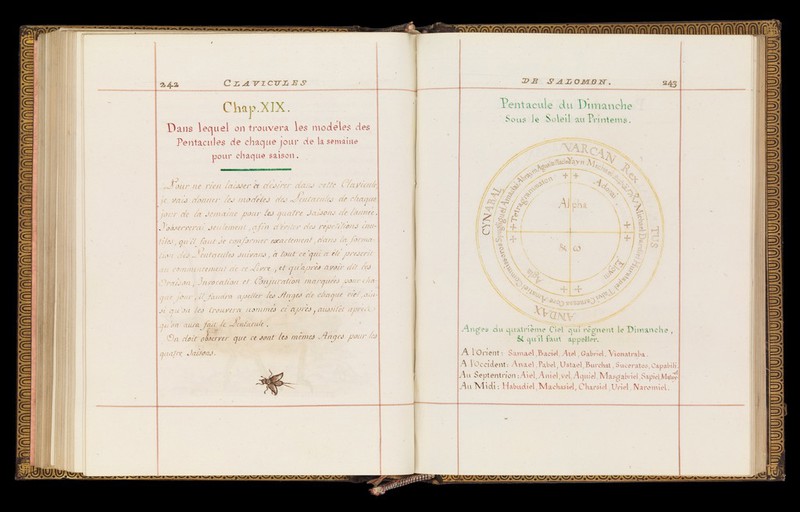 242
CLAVICULES
Chap. XIX.
Dans lequel on trouvera les modéles des
Pentacules de chaque jour de la semaine
pour chaque saison.
Pour ne rien laisser à désirer dans cette Clavicule,
je vais donner les modéles des Pentacules de chaque
jour de la semaine pour les quatre saisons de l'année.
J'observerai seulement, afin d'éviter des répétitions inu-
tiles, qu'il faut se conformer exactement, dans la forma-
tion des Pentacules suivans, à tout ce qui a été prescrit
au commencement de ce Livre, et qu'après avoir dit les
Oraison, Invocation et Conjuration marquées pour cha-
que jour, il faudra apeller les Anges de chaque Ciel ain-
si qu'on les trouvera nommés ci après, aussitôt après
qu'on aura fait le Pentacule.
On doit observer que ce sont les mêmes Anges pour les
quatre Saisons.
DE SALOMON.
243
Pentacule du Dimanche
Sous le Soleil au Printems.
VARCAN REX
TUS
ANDAX
CYNABAL
Tetragrammaton
Adonai
Eloym
Agla
Alpha
& ω
Anges du quatrième Ciel qui régnent le Dimanche,
& qu'il faut appeller.
A l'Orient: Samael, Baciel, Atel, Gabriel, Vionatraba.
A l'Occident: Anael, Pabel, Ustael, Burchat, Suceratos, Capabili.
Au Septentrion: Aiel, Aniel, vel, Aquiel, Masgabriel, Sapiel, Matuyel
Au Midi: Habudiel, Machasiel, Charsiel, Uriel, Naromiel.